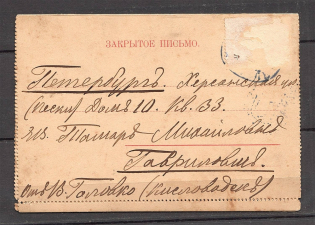 ЗАКРЫТОЕ ПИСЬМО.
Петербургъ. Херсонская ул.
(Пески) Домъ 10. Кв. 33.
Тамарѣ Михайловнѣ
Гавриловой.
Отъ В. Головко (Кисловодскъ)